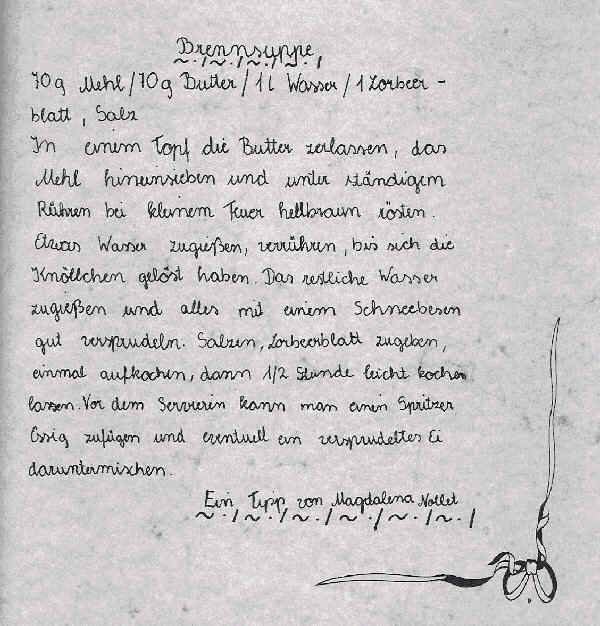 Brennsuppe
70g Mehl/70g Butter/1l Wasser/1 Lorbeer-
blatt, Salz
In einem Topf die Butter zerlassen, das
Mehl hineinsieben und unter ständigem
Rühren bei kleinem Feuer hellbraun rösten.
Etwas Wasser zugießen, verrühren, bis sich die
Knöllchen gelöst haben. Das restliche Wasser
zugießen und alles mit einem Schneebesen
gut versprudeln. Salzen, Lorbeerblatt zugeben,
einmal aufkochen, dann 1/2 Stunde leicht kochen
lassen. Vor dem Servieren kann man einen Spritzer
Essig zufügen und eventuell ein versprudeltes Ei
daruntermischen.
Ein Tipp von Magdalena Nollet